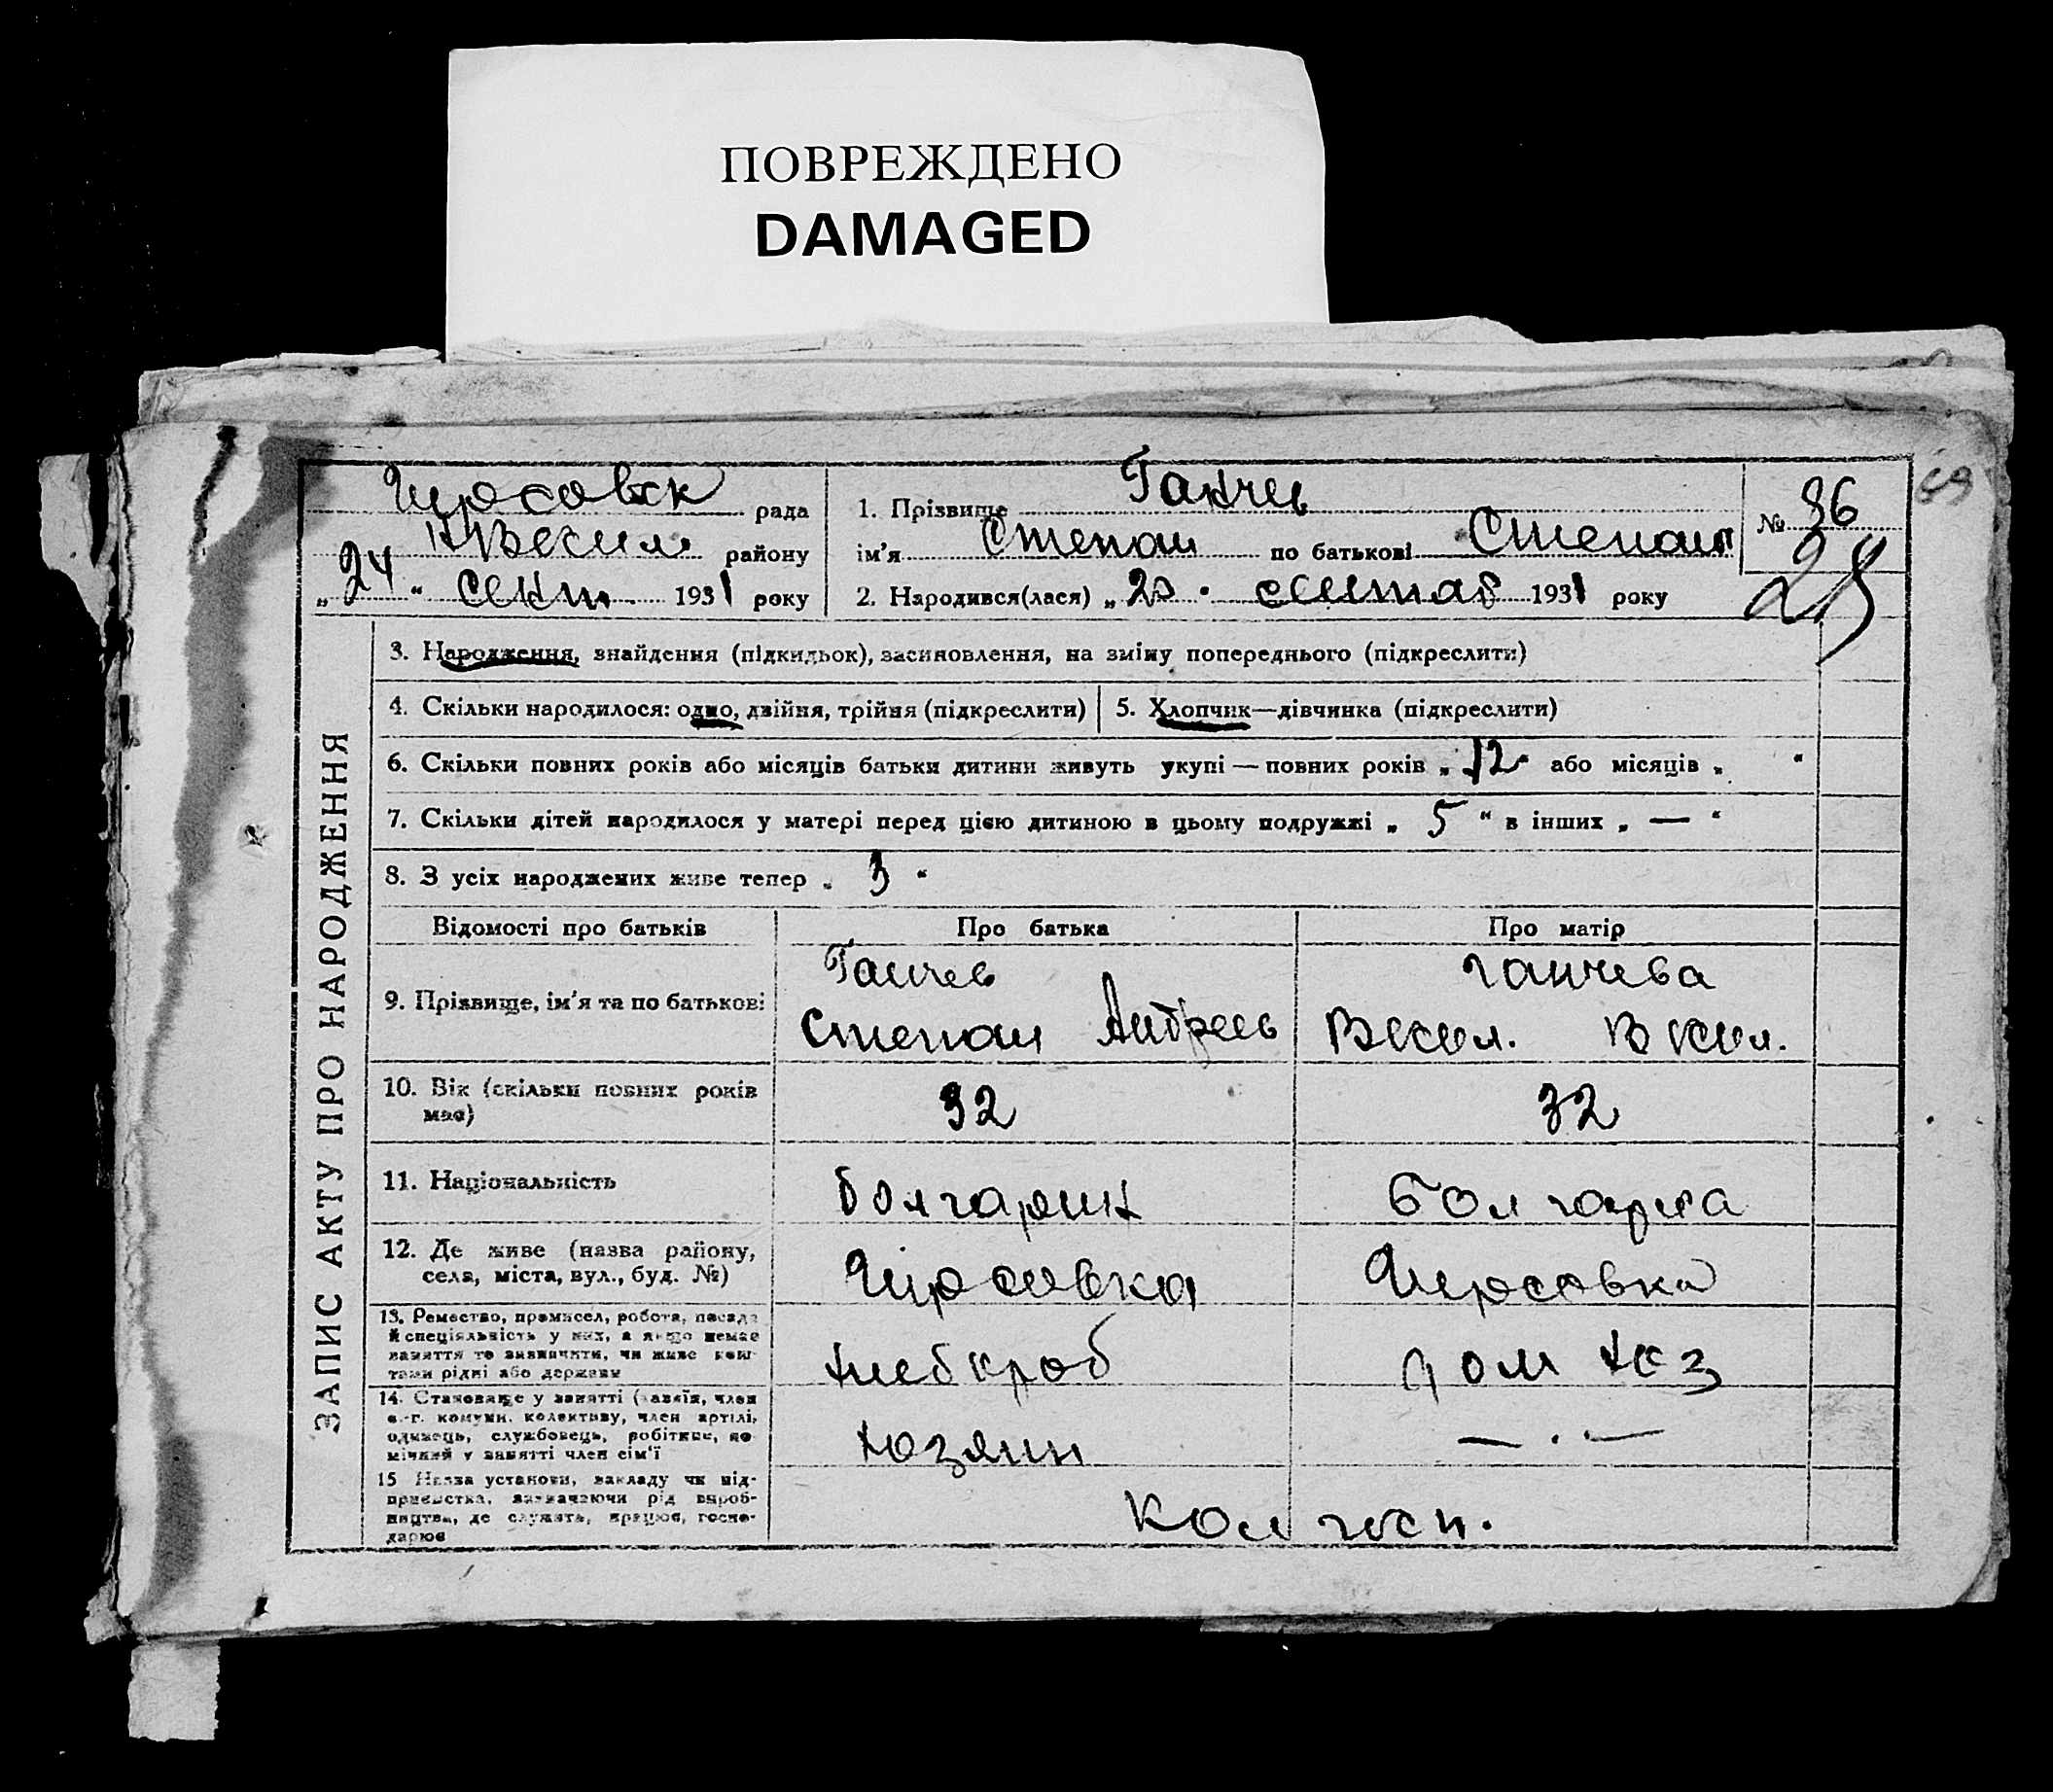 ПОВРЕЖДЕНО
DAMAGED
69
рада
району
„ 24 “ сент. 1931 року
1. Прізвище Ганчев
ім'я Степан по батькові Степан
2. Народився(лася) „ 23 “ 1931 року
№ 36
ЗАПИС АКТУ ПРО НАРОДЖЕННЯ
3. Народження, знайдення (підкидьок), засиновлення, на зміну попереднього (підкреслити)
4. Скільки народилося: одно, двійня, трійня (підкреслити)
5. Хлопчик—дівчинка (підкреслити)
6. Скільки повних років або місяців батьки дитини живуть укупі — повних років „ 12 “ або місяців „ “
7. Скільки дітей народилося у матері перед цією дитиною в цьому подружжі „ 5 “ в інших „ — “
8. З усіх народжених живе тепер „ 3 “
Відомості про батьків Про батька Про матір
9. Прізвище, ім'я та по батькові:
Ганчев
Степан Андреев
Ганчева
Васил. Васил.
10. Вік (скільки повних років
має)
32 32
11. Національність болгарин болгарка
12. Де живе (назва району,
села, міста, вул., буд. №)
13. Ремество, промисел, робота, посада
й спеціяльність у них, а якщо немає
заняття то зазначити, чи живе кош-
тами рідні або держави
хлебороб дом хоз
14. Становище у занятті (хазяїн, член
с.-г. комуни, колективу, член артілі,
одинець, службовець, робітник, по-
мічний у занятті член сім'ї
хозяин — . —
15 Назва установи, закладу чи під-
приємства, зазначаючи рід вироб-
ництва, де служить, працює, госпо-
дарює